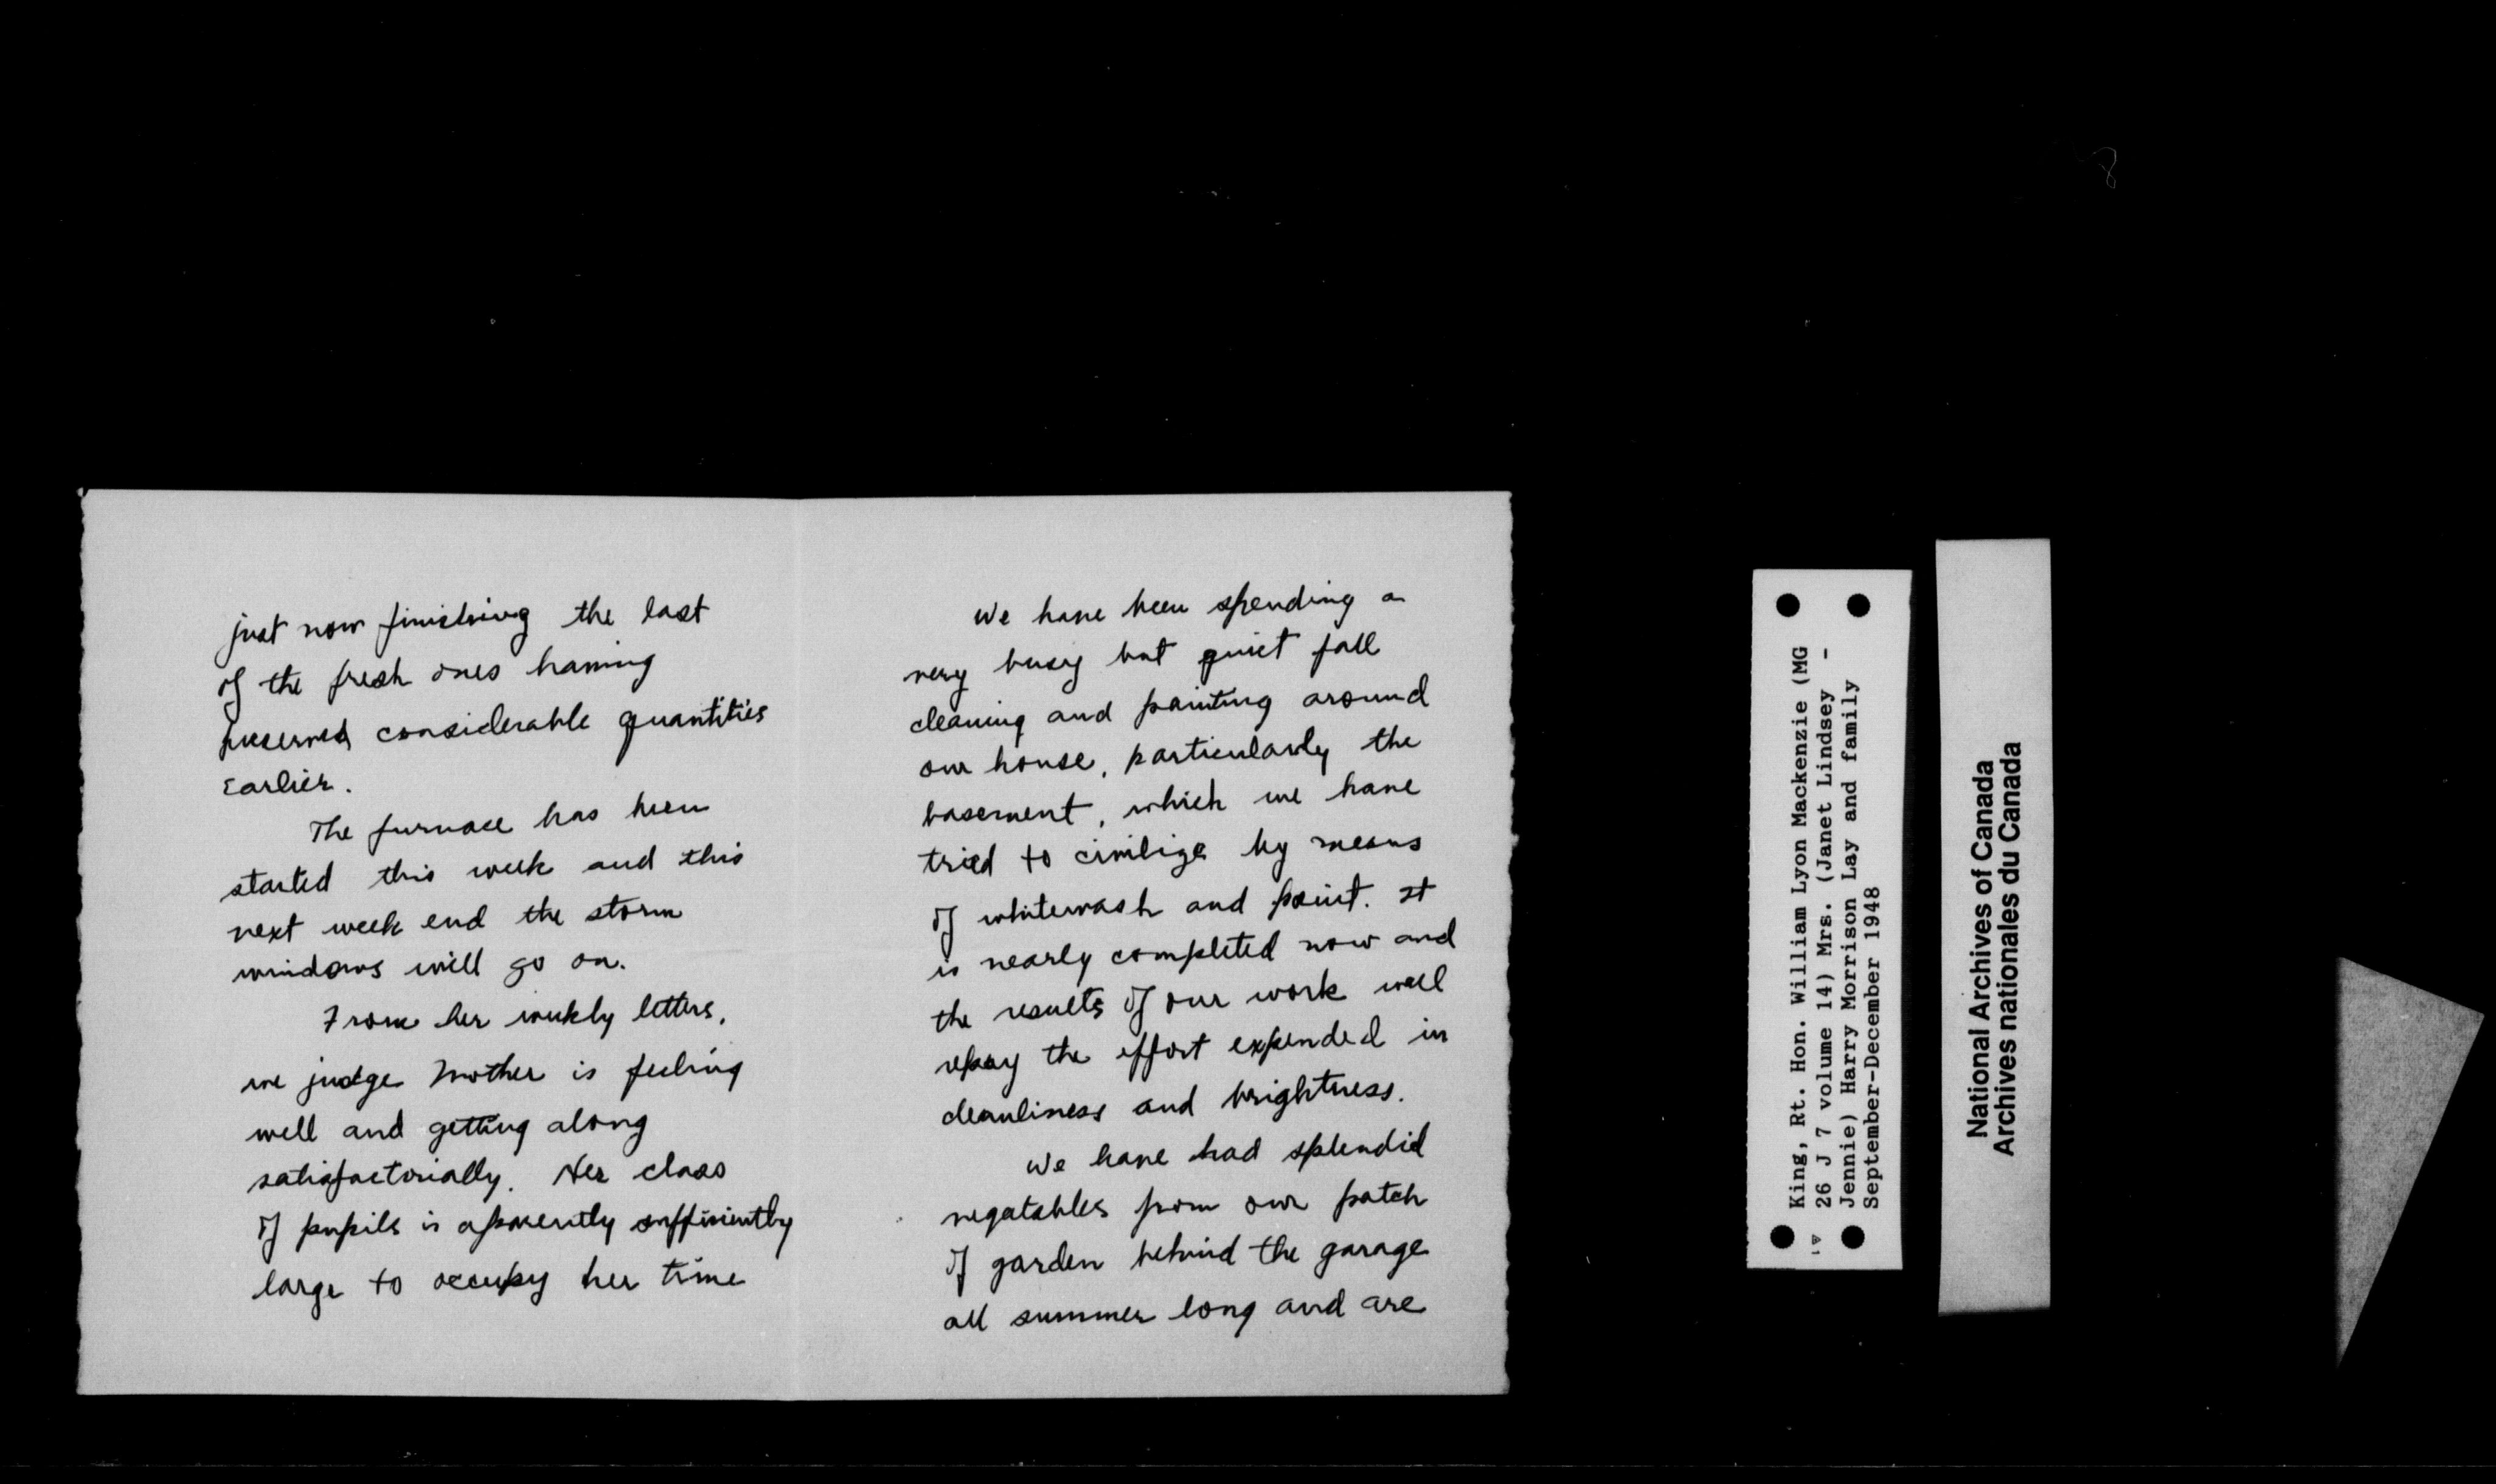 just now finishing the last
of the fresh ones having
preserved considerable quantities
Earlier.
The furnace has been
started this week and this
next week end the storm
windows will go on.
From her weekly letters,
we judge Mother is feeling
well and getting along
satisfactorially. Her class
of pupils is apparently sufficiently
large to occupy her time
We have been spending a
very busy but quiet fall
cleaning and painting around
our house, particularly the
basement, which we have
tried to civilize by means
of whitewash and paint. It
is nearly completed now and
the results of our work well
repay the effort expended in
cleanliness and brightness.
We have had splendid
vegatables from our patch
of garden behind the garage
all summer long and are
King, Rt. Hon. William Lyon Mackenzie (MG
26 J 7 volume 14) Mrs. (Janet Lindsey -
Jennie) Harry Morrison Lay and family
September-December 1948
National Archives of Canada
Archives nationales du Canada